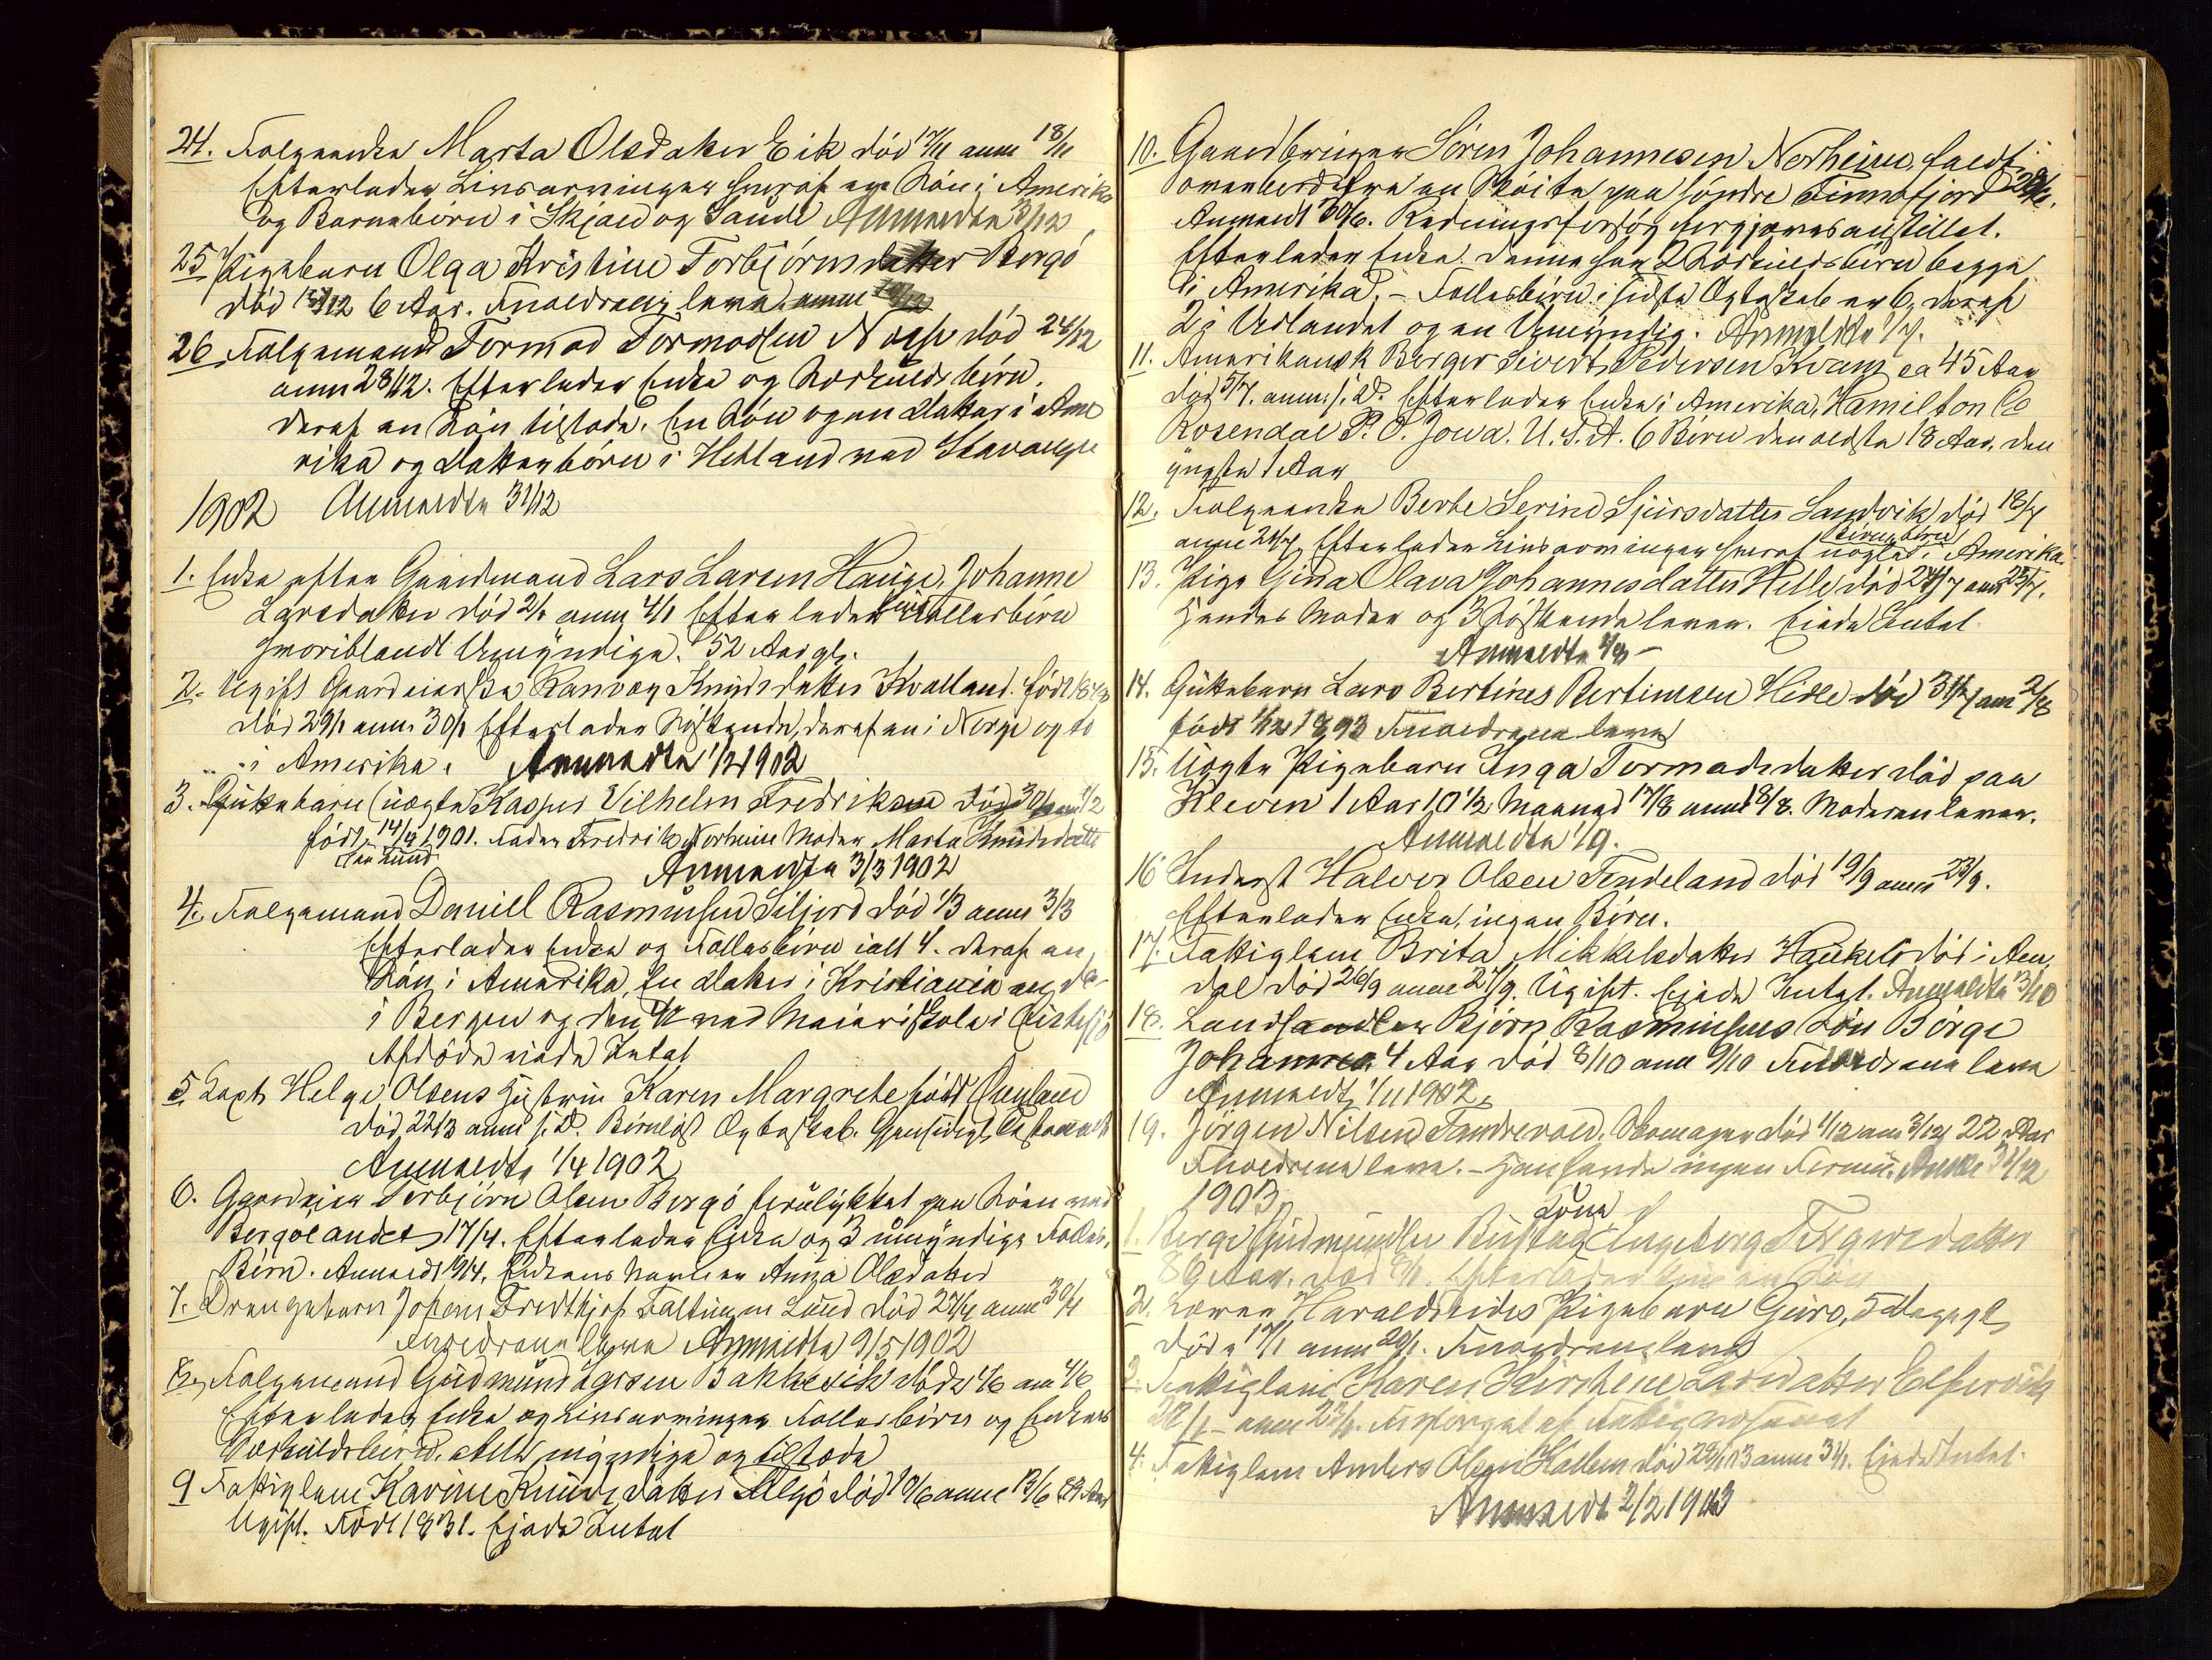 24. Folgeenke Marta Olsdatter Eik død 17/11 anm 18/11
Efterlader Livsarvinger hvoraf en Søn i Amerika
og Barnebørn i Skjold og Saude Anmeldte 3/12
25 Pigebarn Olga Kristine Torbjørnsdatter Borgø
død 12 6 Aar. Foreldrene leve. anm
26 Folgemand Tormod Tormodsen død 24/12
anm 28/12. Efterlader Enke og Særkuldsbørn.
deraf en Søn tilstede. En Søn og en Datter i Ame
rika og Datterbørn i Hetland ved Stavanger
1902 Anmeldte 31/12
1. Enke efter Gaardmand Lars Larsen Hauge, Johanne
Larsdatter død 2/1 anm 4/1 Efterlader Fællesbørn
hvoriblandt Umyndige. 52 Aar gl.
2. Ugift Gaardeierske Ranvog Knudsdatter Kvalland. født 1843
død 29/1 anm. 30/1 Efterlader Søskende, deraf en i Norge og to
i Amerika. Anmeldte 1/2 1902
3. Guttebarn (uægte) Kasper Vilhelm Fredriksen død 30/1 anm 1/2
født 14/9 1901. Fader Fredrik Norheim Moder Marta Knudsdatter
Lund
Anmeldte 3/3 1902
4. Folgemand Daniel Rasmussen Siljord død 1/3 anm 3/3
Efterlader Enke og Fællesbørn ialt 4. deraf en
Søn i Amerika, En Datter i Kristiania en do
i Bergen og den ved Meieriskole i
Afdøde eiede Intet
5 Capt. Helge Olsens Hustru Karen Margrete født Øenland
død 22/3 anm s. D. Børnløst Ægteskab. Gjensidigt Testament
Anmeldte 1/4 1902
6. Gaardeier Torbjørn Olsen Borgø forulykket paa Søen ved
Borgølandet 17/4. Efterlader Enke og 3 umyndige Fælles
Børn. Anmeldt 19/4. Enkens Navn er Anna Olsdatter
7. Drengebarn Johan Fredthjof Faltinsen Lund død 27/4 anm 30/4
Foreldrene leve Anmeldte 9/5 1902
8. Folgemand Gudmund Aarsen Bakkevik død 1/6 anm 4/6
Efterlader Enke og Livsarvinger Fællesbørn og Enkens
Særkuldsbørn. Alle myndige og tilstede
9 Fattiglem Karine Knudsdatter Algø død 10/6 anm 13/6
Ugift. Født 1831. Eiede Intet
10. Gaardbruger Søren Johannesen Norheim, faldt
overbord fra en Skøite paa søndre Finnøfjord 28/6.
Anmeldt 30/6. Redningsforsøg forgjæves anstillet.
Efterlader Enke. Denne har 2 Særkuldsbørn begge
i Amerika. - Fællesbørn i sidste Ægteskab er 6, deraf
2 i Udlandet og en Umyndig. Anmeldte 1/7.
11. Amerikansk Borger Sivert Pedersen Kvam, ca 45 Aar
død 5/7. anm. s. D. Efterlader Enke i Amerika, Hamilton Co
Rosendal P. O. Jowa. U. S. A. 6 Børn den ældste 18 Aar, den
yngste 1 Aar
12. Folgeenke Berte Serine Sjursdatter Sandvik død 18/7
anm 21/7 Efterlader Livsarvinger hvoraf nogle i Amerika.
13. Pige Gina Olava Johannesdatter Helle død 24/7 anm 25/7.
Hendes Moder og 3 Søskende lever. Eiede Intet
Anmeldte 1/8 -
14. Guttebarn Lars Bertines Bertinsen Hidle død 31/7 anm 2/8
født 1/12 1893 Foreldrene leve
15. Uægte Pigebarn Inga Tormodsdatter død paa
Kleven 1 Aar 10 1/2 Maaned 17/8 anm 18/8. Moderen lever.
Anmeldte 1/9.
16 Inderst Halvor Olsen Tendeland død 19/9 anm 23/9.
Efterlader Enke, ingen Børn.
17. Fattiglem Brita Mikkelsdatter Haukeli død i Aen
dal død 26/9 anm 27/9. Ugift. Eiede Intet. Anmeldte 3/10
18. Landhandler Bjørn Rasmussens Søn Børge
Johannes 4 Aar død 8/10 anm 9/10 Foreldrene leve
Anmeldt 1/11 1902.
19. Jørgen Nilsen Tandrevold. Skomager død 1/12 anm 3/12 22 Aar
Foreldrene leve. - Han havde ingen Formue. Anmeldt 31/12
1903
Kone
1. Børge Gudmundsen Ingeborg Tengesdatter
89 Aar. død Efterlader kun en Søn
2. Haraldseides Pigebarn Guro, 5 Dage gl.
død 17/1 anm 20/1. Foreldrene leve
3. Fattiglem Karen Kirstine Larsdatter
22/1 - anm 22/1. Forsørget af Fattigvæsenet
4. Fattiglem Anders Olsen Kallem død 28/1 03 anm 31/1. Eiede Intet.
Anmeldt 2/2 1903